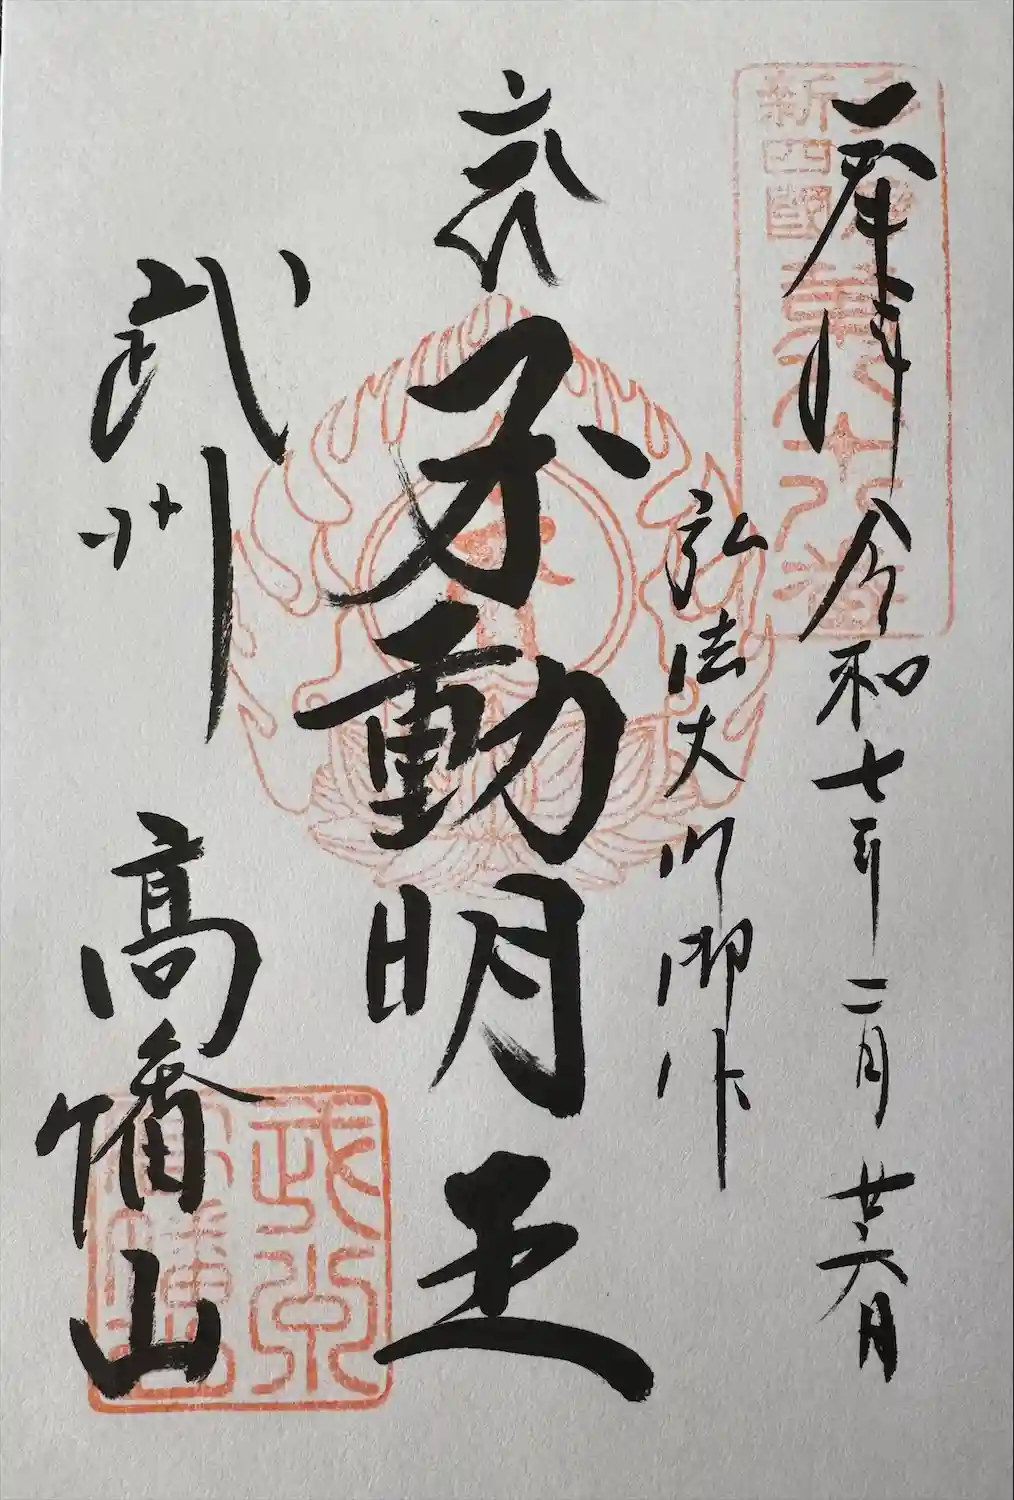 奉拝 令和七年二月廿六日
弘法大師御作
不動明王
武州 高幡山
新四國